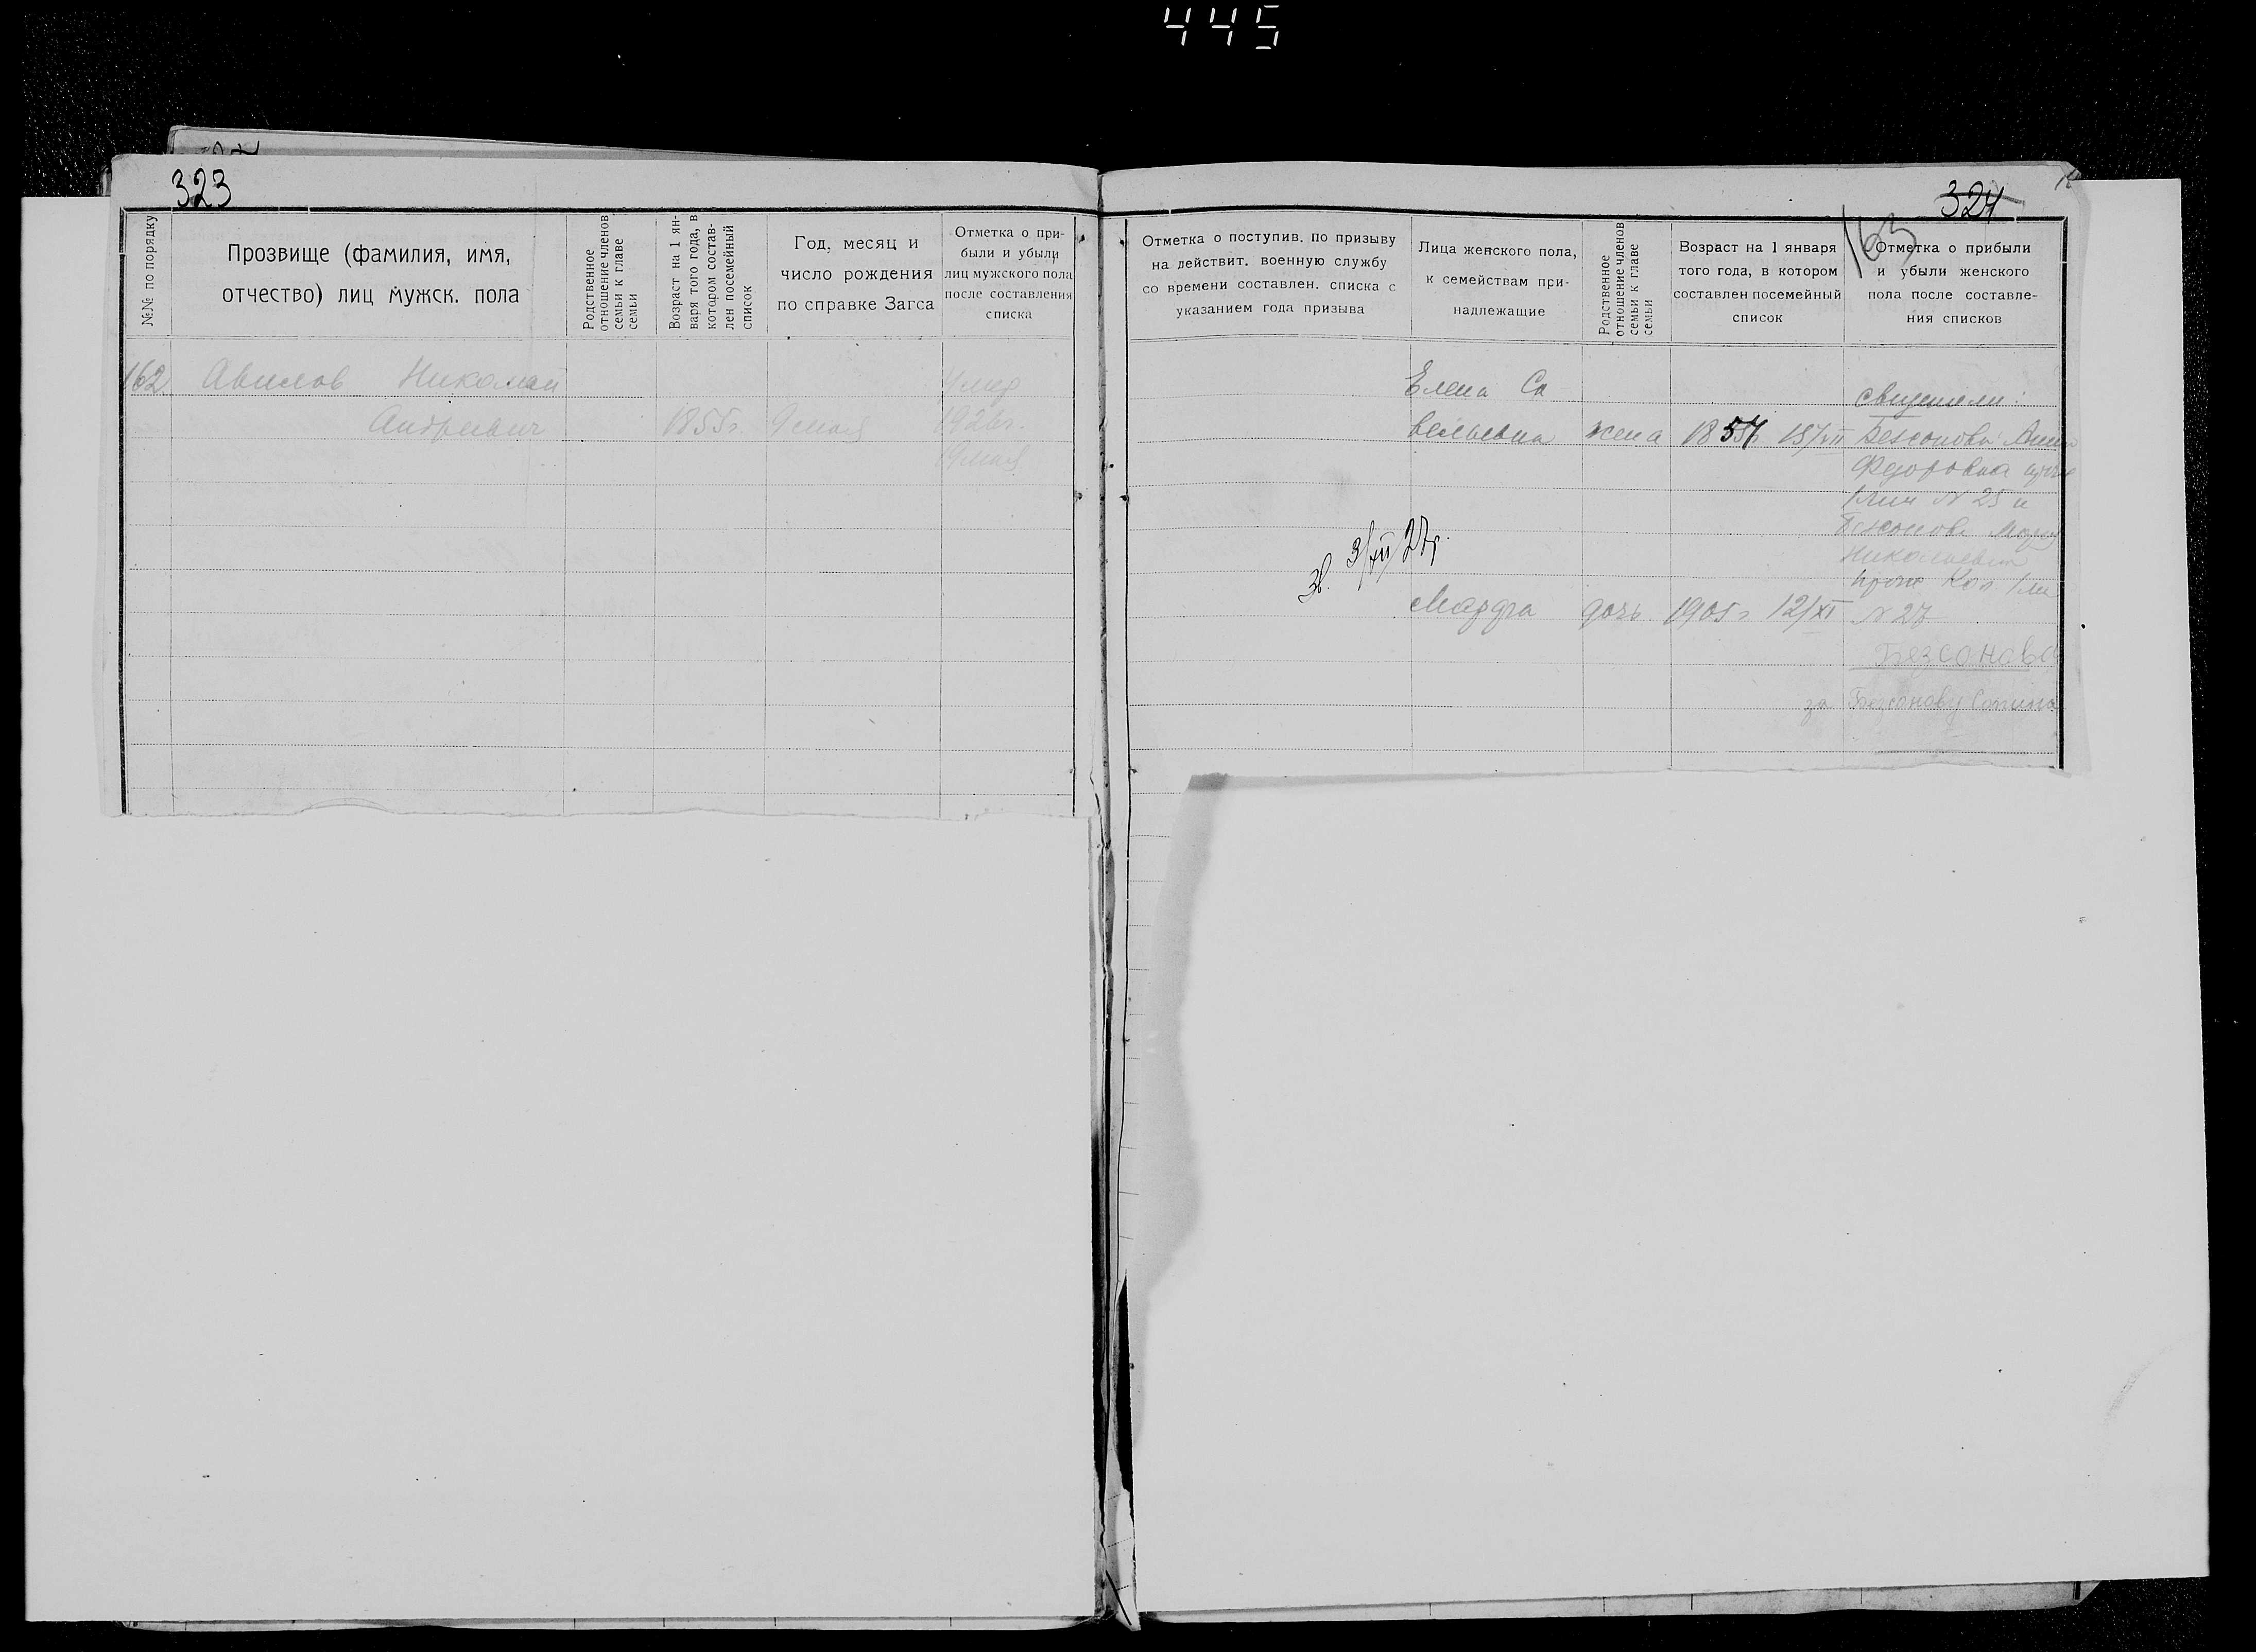 445
323
№№ по порядку
Прозвище (фамилия, имя,
отчество) лиц мужск. пола
Родственное
отношение членов
семьи к главе
семьи
Возраст на 1 ян-
варя того года, в
котором состав-
лен посемейный
список
Год, месяц и
число рождения
по справке Загса
Отметка о при-
были и убыли
лиц мужского пола
после составления
списка
162 Авилов Николай
Андреевич 1855г. 9 мая
Умер
1926г.
19 мая
324
163
Отметка о поступив. по призыву
на действит. военную службу
со времени составлен. списка с
указанием года призыва
Лица женского пола,
к семействам при-
надлежащие
Родственное
отношение членов
семьи к главе
семьи
Возраст на 1 января
того года, в котором
составлен посемейный
список
Отметка о прибыли
и убыли женского
пола после составле-
ния списков
Елена Са
вельевна жена 1857 15/VII
зв. 3/XII 27г.
Марфа дочь 1905г 12/XI
свидетели:
Безсонова Анна
Федоровна
N 25 и
Безсонова
Николаевна
прож Кол
N 27
Безсонова
за Безсонову